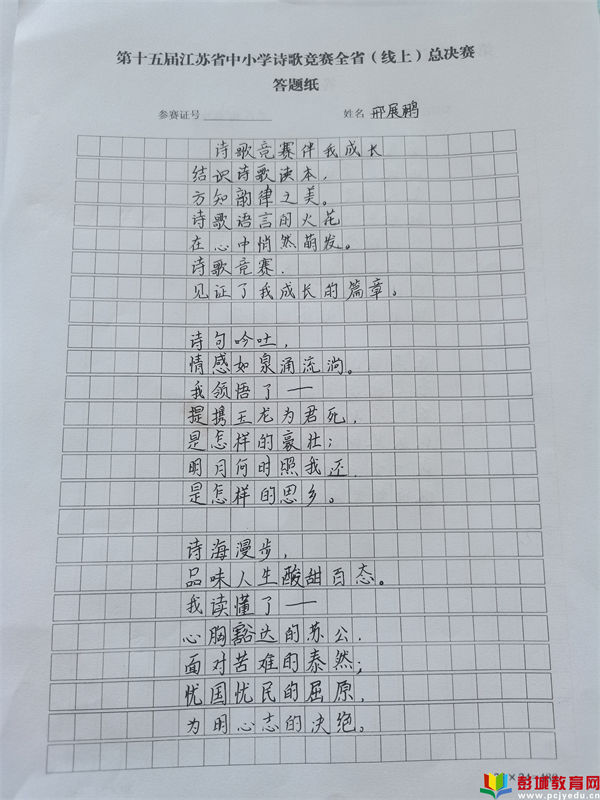 第十五届江苏省中小学诗歌竞赛全省（线上）总决赛
答题纸
参赛证号 姓名 邢展鹏
诗歌竞赛伴我成长
结识诗歌读本，
方知韵律之美。
诗歌语言用火花
在心中悄然萌发。
诗歌竞赛，
见证了我成长的篇章。
诗句吟吐，
情感如泉涌流淌。
我领悟了——
提携玉龙为君死，
是怎样的豪壮；
明月何时照我还，
是怎样的思乡。
诗海漫步，
品味人生酸甜百态。
我读懂了——
心胸豁达的苏公，
面对苦难的泰然；
忧国忧民的屈原，
为明心志的决绝。
彭城教育网
www.pcjyedu.cn